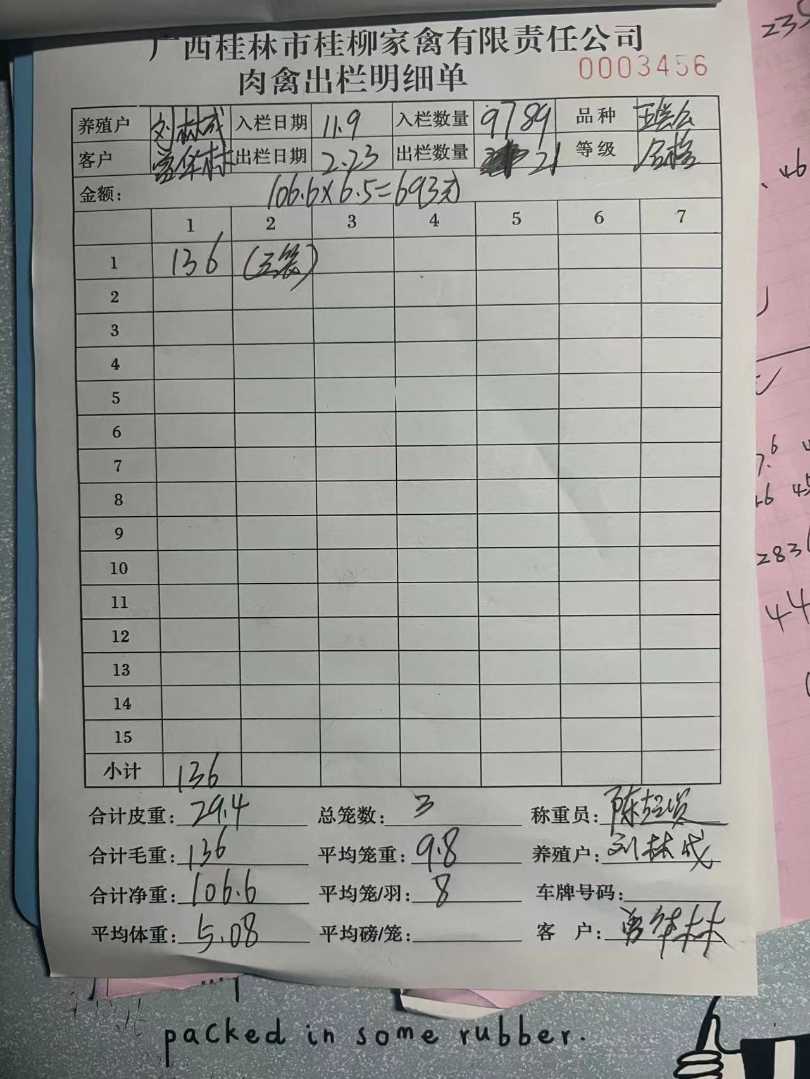 广西桂林市桂柳家禽有限责任公司
肉禽出栏明细单 0003456
养殖户 刘林成 入栏日期 11.9 入栏数量 9789 品种
客户 曾华林 出栏日期 2.23 出栏数量 21 等级 合格
金额: 106.6×6.5=693元
1 2 3 4 5 6 7
1 136 (三笼)
2
3
4
5
6
7
8
9
10
11
12
13
14
15
小计 136
合计皮重: 29.4 总笼数: 3 称重员: 陈
合计毛重: 136 平均笼重: 9.8 养殖户: 刘林成
合计净重: 106.6 平均笼/羽: 8 车牌号码:
平均体重: 5.08 平均磅/笼: 客 户: 曾华林
packed in some rubber.
235
.46
7.6
46 45
2836
44